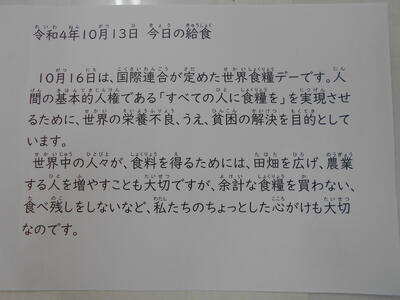 令和4年10月13日 今日の給食
10月16日は、国際連合が定めた世界食糧デーです。人
間の基本的人権である「すべての人に食糧を」を実現させ
るために、世界の栄養不良、うえ、貧困の解決を目的として
います。
世界中の人々が、食料を得るためには、田畑を広げ、農業
する人を増やすことも大切ですが、余計な食糧を買わない、
食べ残しをしないなど、私たちのちょっとした心がけも大切
なのです。